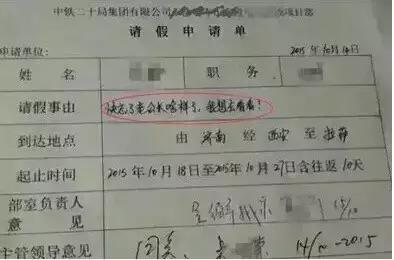 中铁二十局集团有限公司 项目部
请假申请单
申请单位： 2015年10月14日
姓名 职务
请假事由 快忘了老公长啥样了，我想去看看！
到达地点 由 济南 经 西安 至
起止时间 2015年10月18日至2015年10月27日含往返10天
部室负责人
意见
主管领导意见 同意 14/10-2015